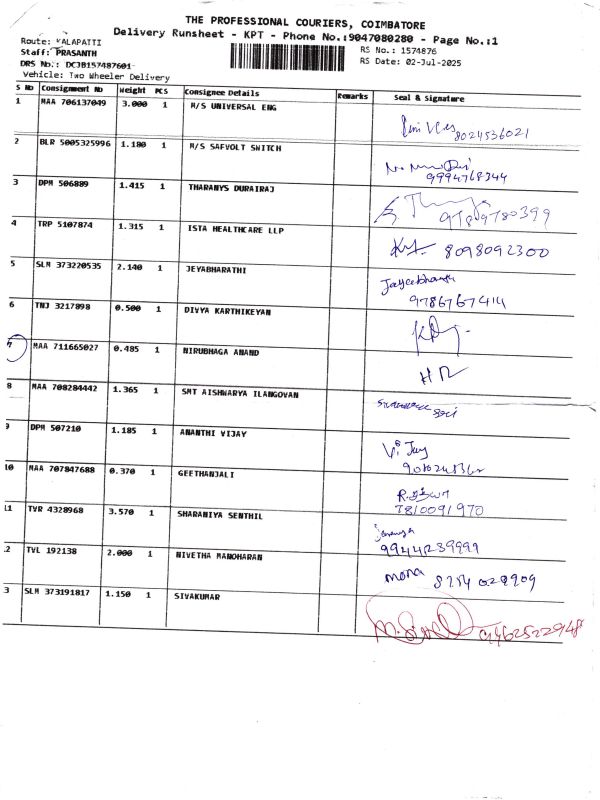 THE PROFESSIONAL COURIERS, COIMBATORE
Delivery Runsheet - KPT - Phone No.:9047080280 - Page No.:1
Route: KALAPATTI
RS No.: 1574876
Staff: PRASANTH
RS Date: 02-Jul-2025
DRS No.: DCJB157487601
Vehicle: Two Wheeler Delivery
S No Consignment No Weight PCS Consignee Details Remarks Seal & Signature
1 MAA 706137049 3.000 1 M/S UNIVERSAL ENG
8024536021
2 BLR 5005325996 1.180 1 M/S SAFVOLT SWITCH
9994768344
3 DPM 506889 1.415 1 THARANYS DURAIRAJ
9789780399
4 TRP 5107874 1.315 1 ISTA HEALTHCARE LLP
8098092300
5 SLM 373220535 2.140 1 JEYABHARATHI
9786767414
6 TNJ 3217898 0.500 1 DIVYA KARTHIKEYAN
7 MAA 711665027 0.485 1 NIRUBHAGA ANAND
8 MAA 708284442 1.365 1 SMT AISHWARYA ILANGOVAN
9 DPM 507210 1.185 1 ANANTHI VIJAY
10 MAA 707847688 0.370 1 GEETHANJALI
7810091970
11 TVR 4328968 3.570 1 SHARANIYA SENTHIL
2 TVL 192138 2.000 1 NIVETHA MANOHARAN
mona
3 SLM 373191817 1.150 1 SIVAKUMAR